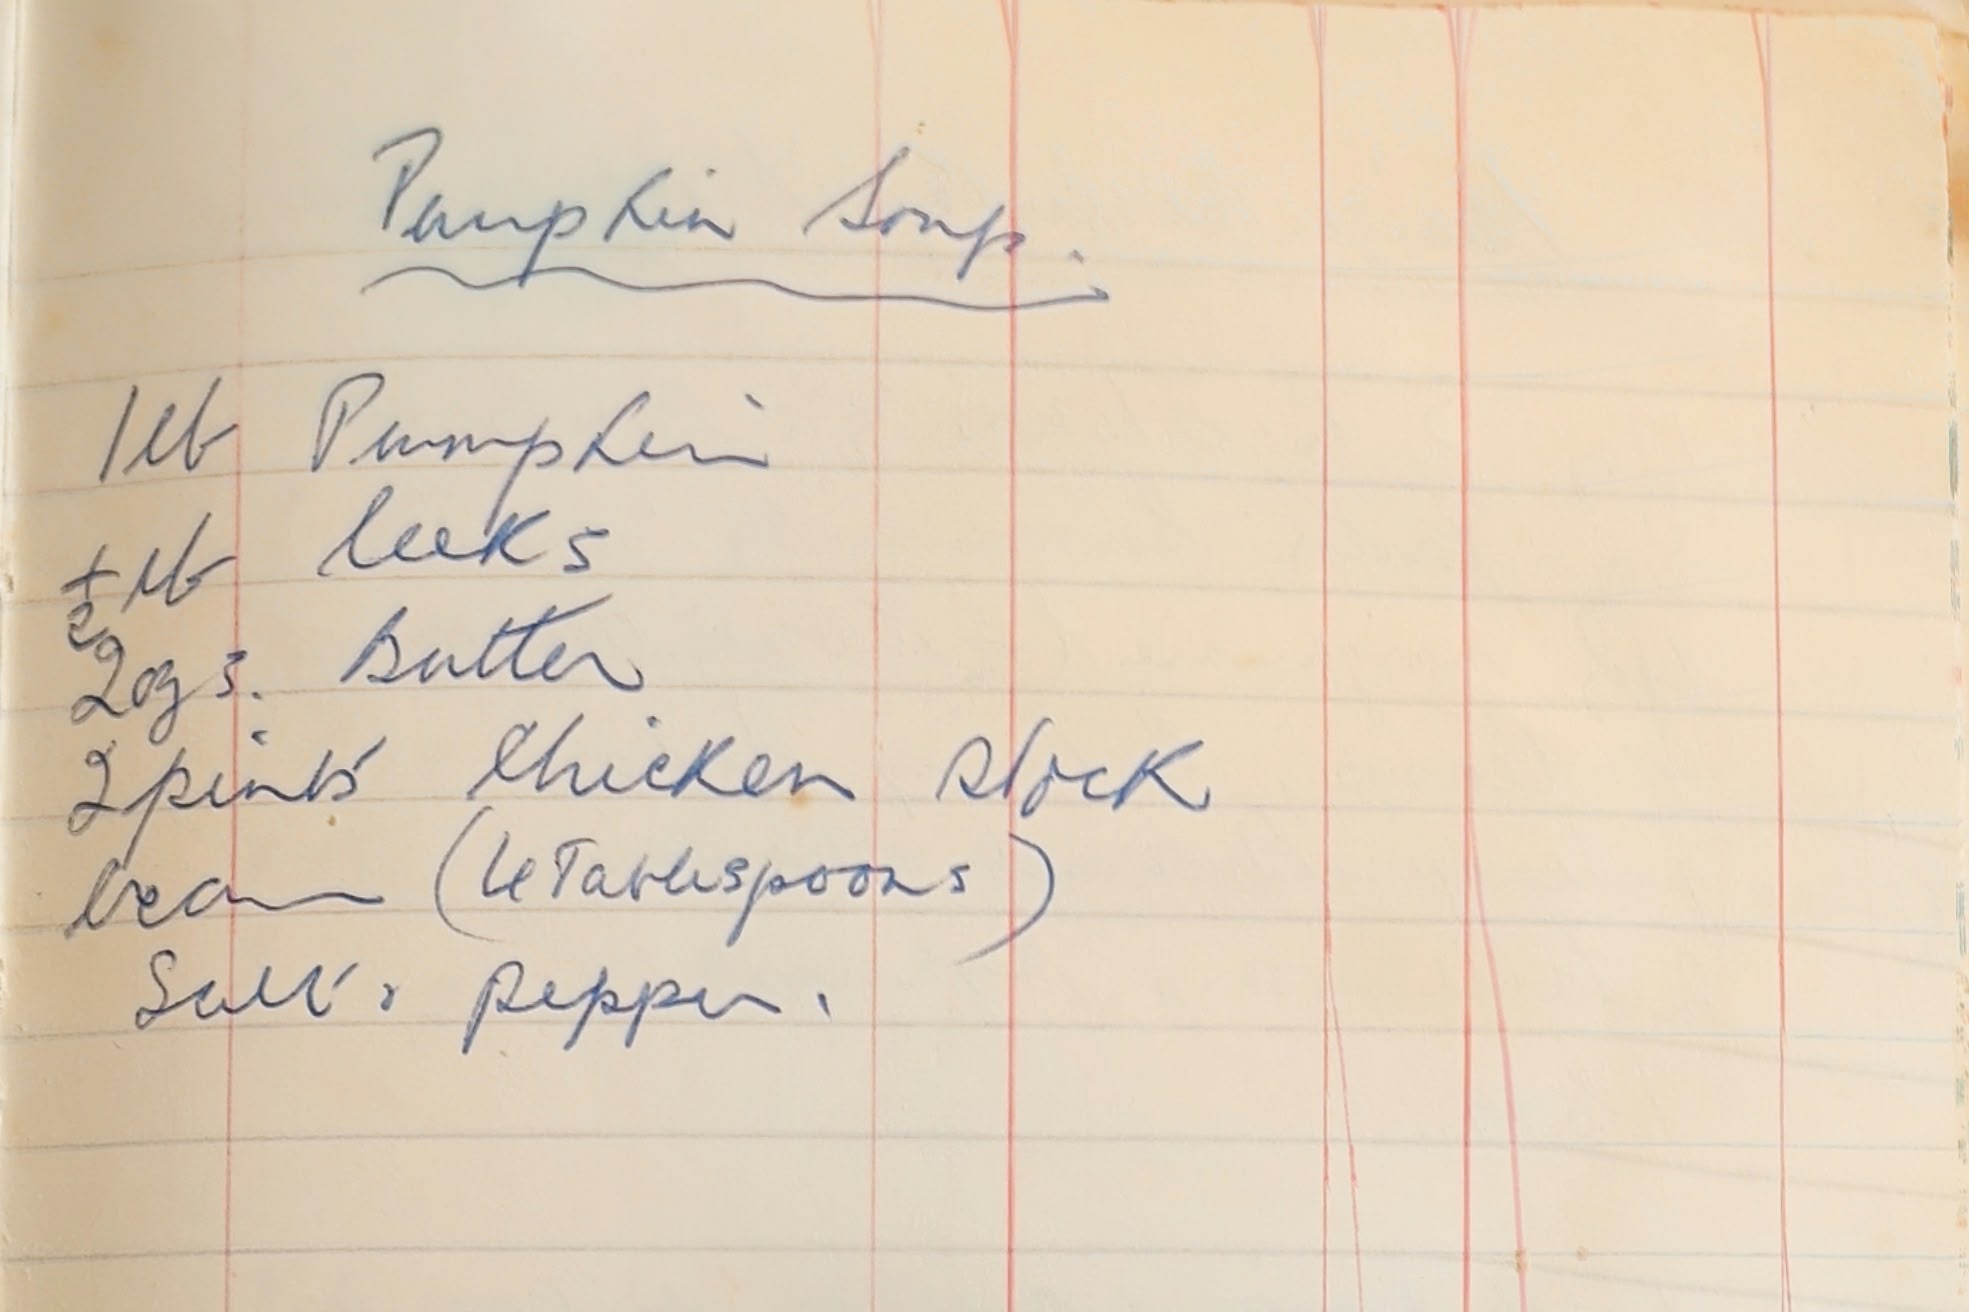 Pumpkin Soup.
1 lb Pumpkin
½ lb leeks
2ozs. Butter
2 pints Chicken stock
Cream (4 Tablespoons)
Salt & pepper.